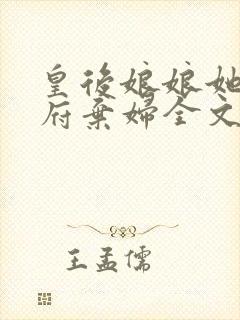 皇後娘娘她
府棄婦全文
王孟儒